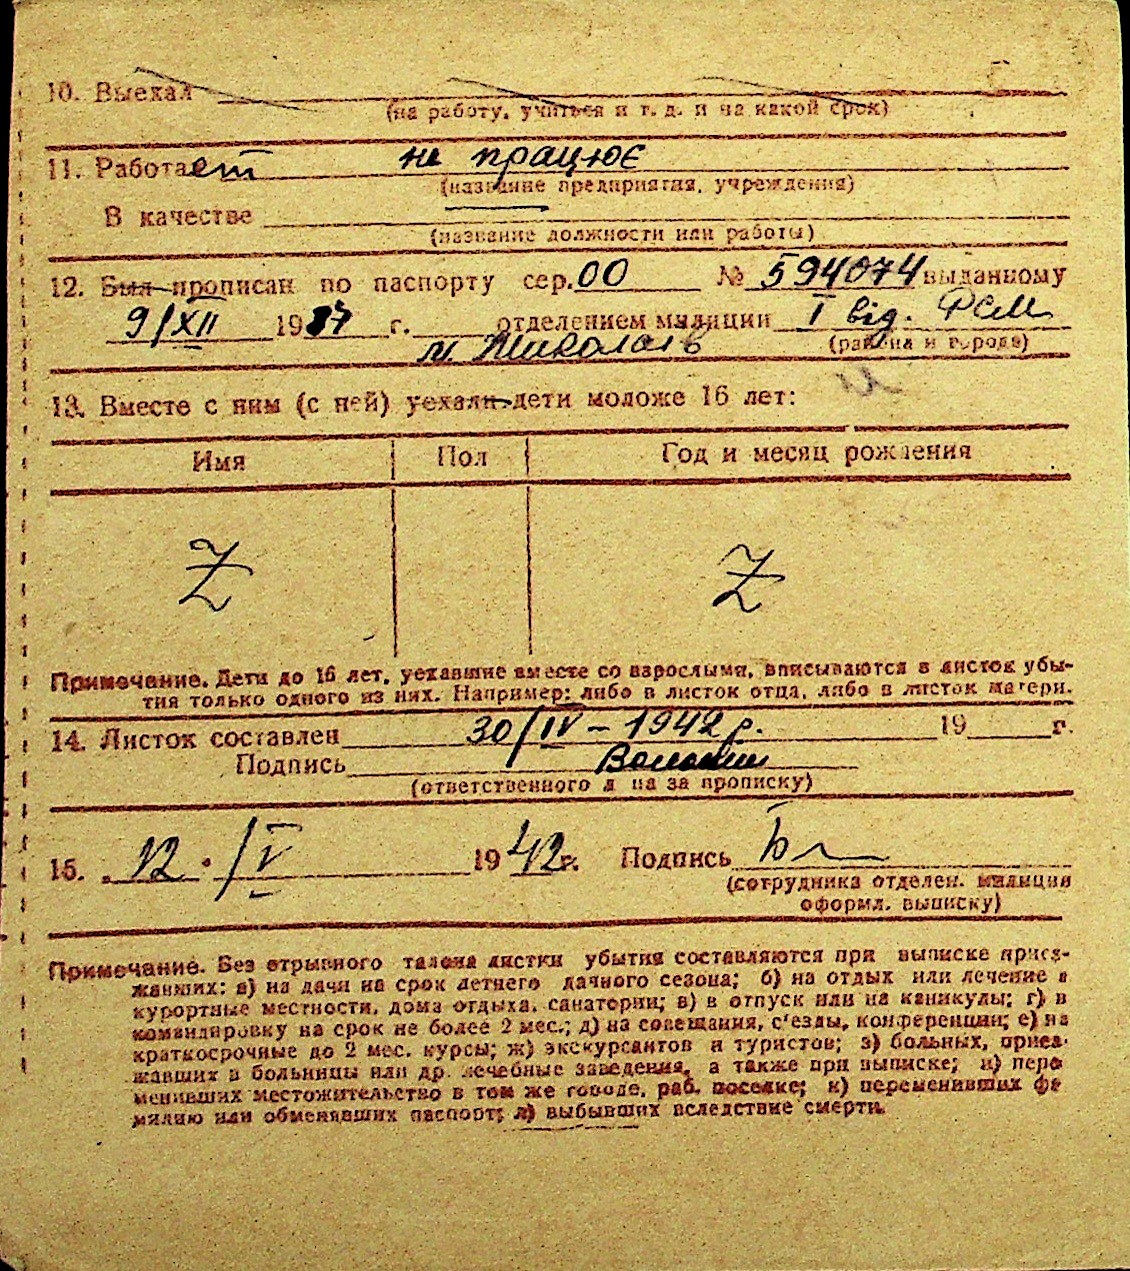 10. Выехал
(на работу, учиться и т. д. и на какой срок)
11. Работает не працює
(название предприятия, учреждения)
В качестве
(название должности или работы)
12. Был прописан по паспорту сер. 00 № 594074 выданному
9/XII 1937 г. отделением милиции I від. РСМ
м. Миколаїв (района и города)
13. Вместе с ним (с ней) уехали дети моложе 16 лет:
Имя Пол Год и месяц рождения
Z Z
Примечание. Дети до 16 лет, уехавшие вместе со взрослыми, вписываются в листок убы-
тия только одного из них. Например: либо в листок отца, либо в листок матери.
14. Листок составлен 30/IV - 1942 р. 19 г.
Подпись
(ответственного л на за прописку)
15. 12 /V 1942 г. Подпись
(сотрудника отделен. милиции
оформл. выписку)
Примечание. Без отрывного талона листки убытия составляются при выписке приез-
жавших: а) на дачи на срок летнего дачного сезона; б) на отдых или лечение в
курортные местности, дома отдыха, санатории; в) в отпуск или на каникулы; г) в
командировку на срок не более 2 мес.; д) на совещания, с'езды, конференции; е) на
краткосрочные до 2 мес. курсы; ж) экскурсантов и туристов; з) больных, приез-
жавших в больницы или др. лечебные заведения, а также при выписке; и) пере
менивших местожительство в том же городе, раб. поселке; к) переменивших фа
милию или обменявших паспорт; л) выбывших вследствие смерти.